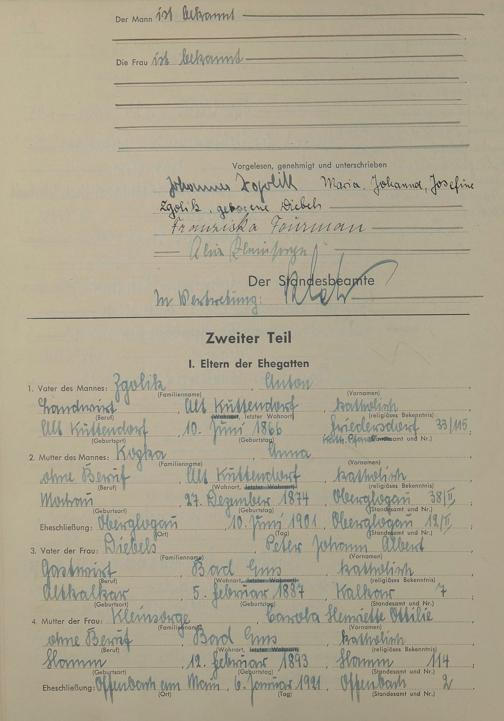 Der Mann ist bekannt
Die Frau ist bekannt
Vorgelesen, genehmigt und unterschrieben
Johannes Zgolik Maria, Johanna, Josefine
Zgolik, geborene Diebels
Franziska
Der Standesbeamte
In Vertretung:
Zweiter Teil
I. Eltern der Ehegatten
1. Vater des Mannes: Zgolik Anton
(Familienname) (Vornamen)
Landwirt, Alt Kuttendorf, katholisch
(Beruf) (Wohnort, letzter Wohnort) (religiöses Bekenntnis)
Alt Kuttendorf, 10. Juni 1866, Friedersdorf 33/115
(Geburtsort) (Geburtstag) (Standesamt und Nr.)
2. Mutter des Mannes: Kogka Anna
(Familienname) (Vornamen)
ohne Beruf, Alt Kuttendorf, katholisch
(Beruf) (Wohnort, letzter Wohnort) (religiöses Bekenntnis)
27. Dezember 1874, Oberglogau 38/II
(Geburtsort) (Geburtstag) (Standesamt und Nr.)
Eheschließung: Oberglogau, 10. Juni 1901, Oberglogau 12/II
(Ort) (Tag) (Standesamt und Nr.)
3. Vater der Frau: Diebels Peter Johann Albert
(Familienname) (Vornamen)
Gastwirt, Bad Ems, katholisch
(Beruf) (Wohnort, letzter Wohnort) (religiöses Bekenntnis)
Altkalkar, 5. Februar 1887, Kalkar 7
(Geburtsort) (Geburtstag) (Standesamt und Nr.)
4. Mutter der Frau: Kleinsorge, Carola Henriette Ottilie
(Familienname) (Vornamen)
ohne Beruf, Bad Ems, katholisch
(Beruf) (Wohnort, letzter Wohnort) (religiöses Bekenntnis)
Hamm, 12. Februar 1893, Hamm 114
(Geburtsort) (Geburtstag) (Standesamt und Nr.)
Eheschließung: Offenbach am Main, 6. Januar 1921, Offenbach 2
(Ort) (Tag) (Standesamt und Nr.)